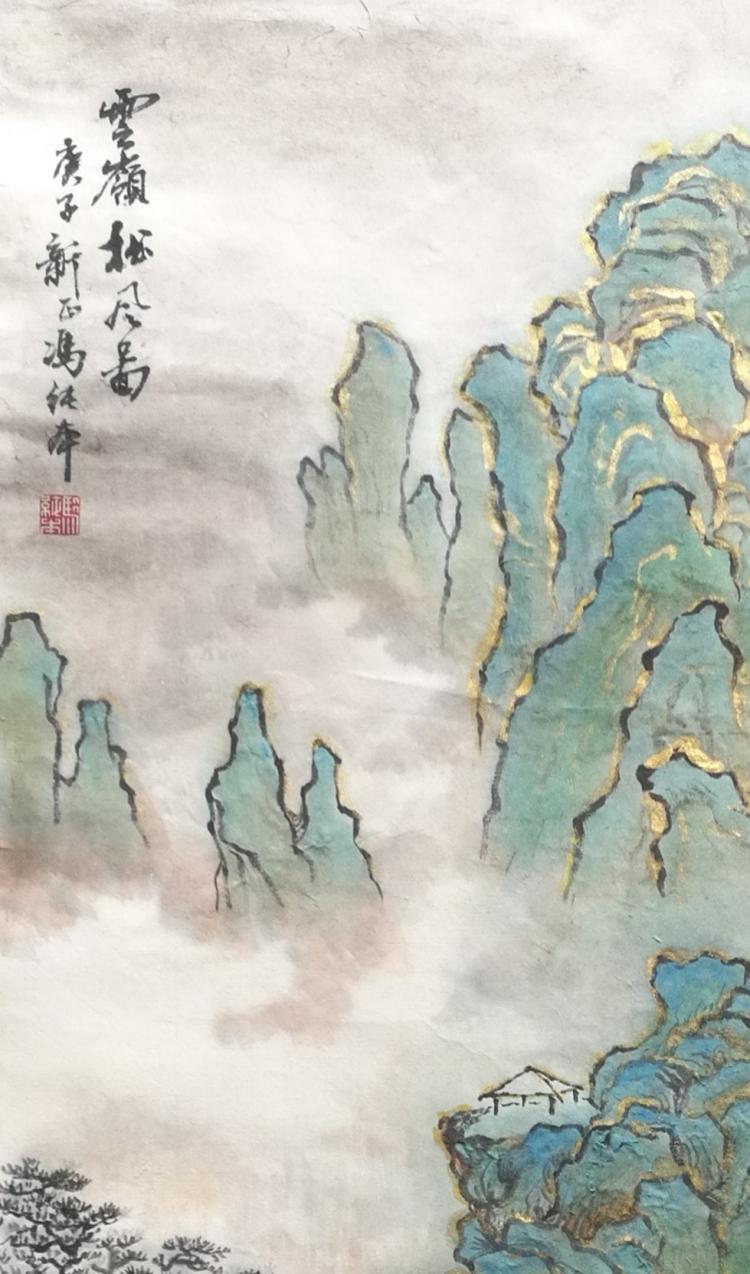 雲嶺松風圖
庚子新正馮純本